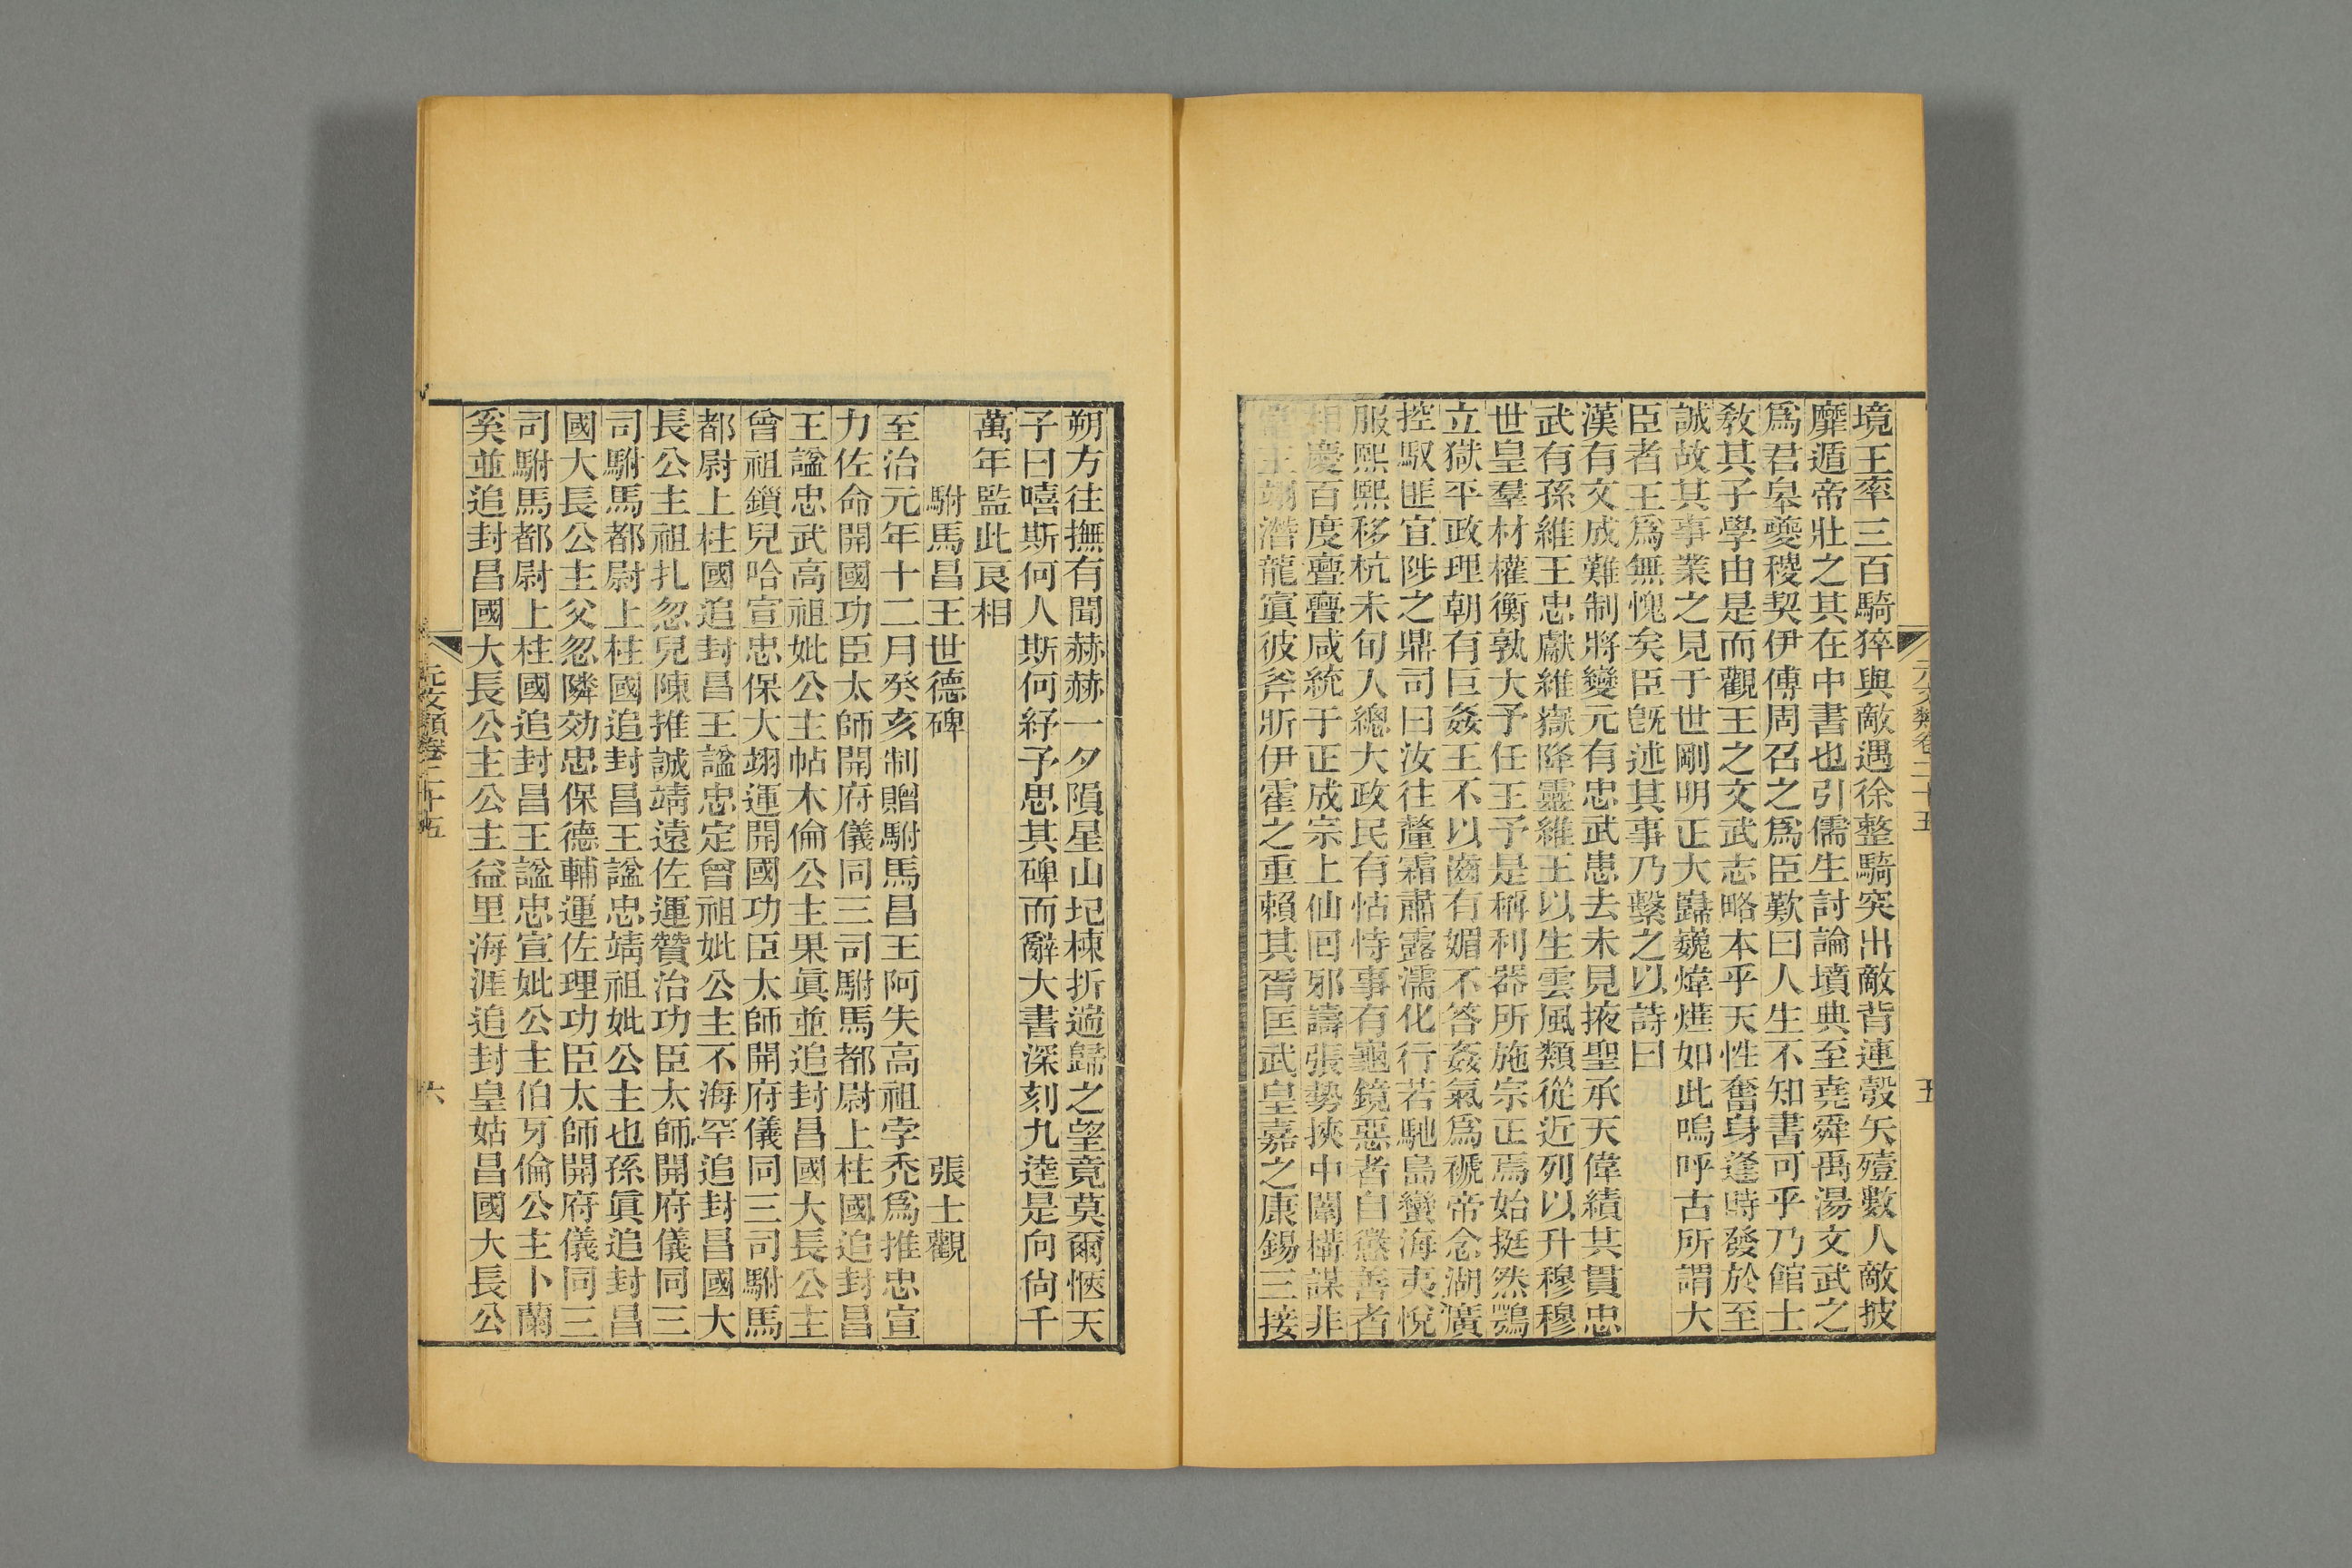 境王率三百騎猝與敵遇徐整騎突出敵背連彀矢殪數人敵披
靡遁帝壯之其在中書也引儒生討論墳典至堯舜禹湯文武之
爲君皋夔稷契伊傅周召之爲臣歎曰人生不知書可乎乃館士
敎其子學由是而觀王之文武志略本乎天性奮身逢時發於至
誠故其事業之見于世剛明正大巋巍煒燁如此嗚呼古所謂大
臣者王爲無愧矣臣旣述其事乃繫之以詩曰
漢有文成難制將變元有忠武患去未見掖聖承天偉績其貫忠
武有孫維王忠獻維嶽降靈維王以生雲風類從近列以升穆穆
世皇羣材權衡孰大予任王予是稱利器所施宗正焉始挺然鶚
立獄平政理朝有巨姦王不以齒有媚不答姦氣爲褫帝念湖廣
控馭匪宜陟之鼎司曰汝往釐霜肅露濡化行若馳島蠻海夷悅
服熙熙移杭未旬人總大政民有怙恃事有龜鏡惡者自懲善者
相慶百度亹亹咸統于正成宗上仙回邪譸張勢挾中闈構謀非
王翊潛龍寘彼斧斨伊霍之重賴其胥匡武皇嘉之康錫三接
元文類卷二十五 五
朔方往撫有聞赫赫一夕隕星山圮棟折遄歸之望竟莫爾愜天
子曰嘻斯何人斯何紓予思其碑而辭大書深刻九逵是向尙千
萬年監此良相
駙馬昌王世德碑 張士觀
至治元年十二月癸亥制贈駙馬昌王阿失高祖孛禿爲推忠宣
力佐命開國功臣太師開府儀同三司駙馬都尉上柱國追封昌
王諡忠武高祖妣公主帖木倫公主果眞並追封昌國大長公主
曾祖鎖兒哈宣忠保大翊運開國功臣太師開府儀同三司駙馬
都尉上柱國追封昌王諡忠定曾祖妣公主不海罕追封昌國大
長公主祖扎忽兒陳推誠靖遠佐運贊治功臣太師開府儀同三
司駙馬都尉上柱國追封昌王諡忠靖祖妣公主也孫眞追封昌
國大長公主父忽隣効忠保德輔運佐理功臣太師開府儀同三
司駙馬都尉上柱國追封昌王諡忠宣妣公主伯牙倫公主卜蘭
奚並追封昌國大長公主公主益里海涯追封皇姑昌國大長公
元文類卷二十五 六